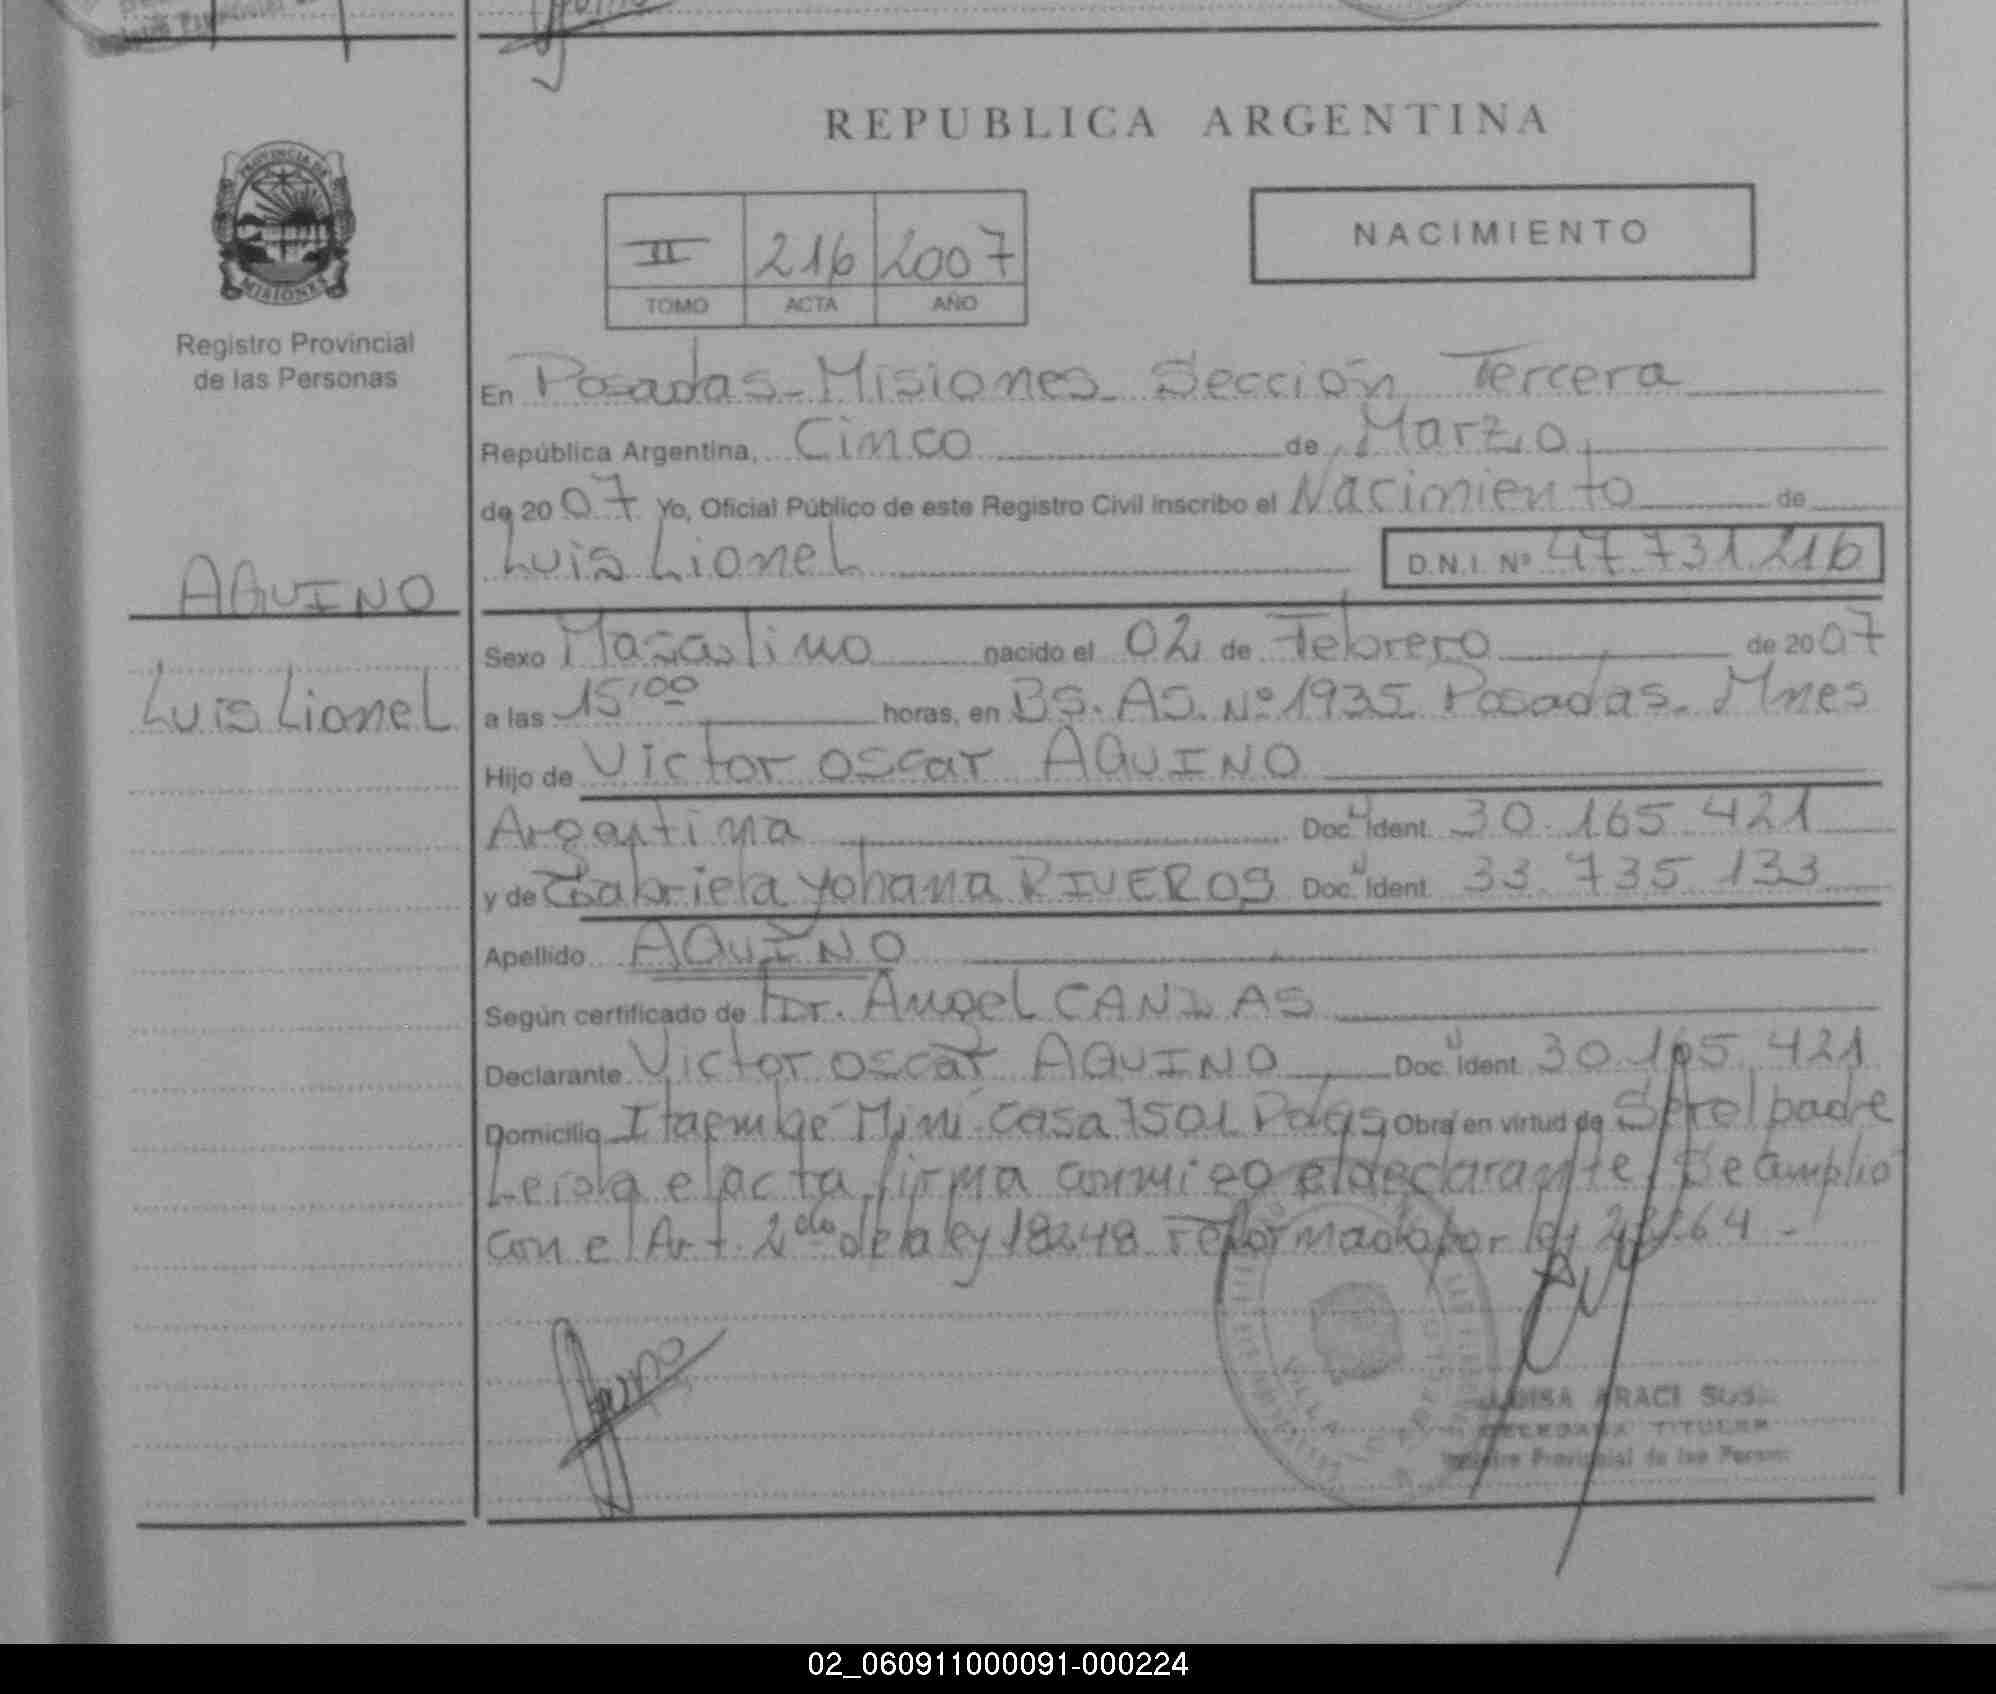 REPUBLICA ARGENTINA
PROVINCIA DE
MISIONES
Registro Provincial
de las Personas
NACIMIENTO
II 216 2007
TOMO ACTA AÑO
En Posadas - Misiones - Sección Tercera
República Argentina, Cinco de Marzo
de 2007 Yo, Oficial Público de este Registro Civil inscribo el Nacimiento de
Luis Lionel D.N.I. Nº 47.731.216
AQUINO
Luis Lionel
Sexo Masculino nacido el 02 de Febrero de 2007
a las 15,00 horas, en BS. AS. Nº 1935 Posadas - Mnes
Hijo de Victor Oscar AQUINO
Argentina Doc. Ident. 30.165.421
y de Gabriela Yohana RIVEROS Doc. Ident. 33.735.133
Apellido AQUINO
Según certificado de Dr. Angel CANZAS
Declarante Victor Oscar AQUINO Doc. Ident. 30.165.421
Domicilio Itaembé Mini Casa 7501 Pdas Obra en virtud de Ser el padre
Leida el acta firma conmigo el declarante. Se amplio
con el Art. 2do de la ley 18248 reformada por ley
ARACI
TITULAR
Provincial de las
02_060911000091-000224